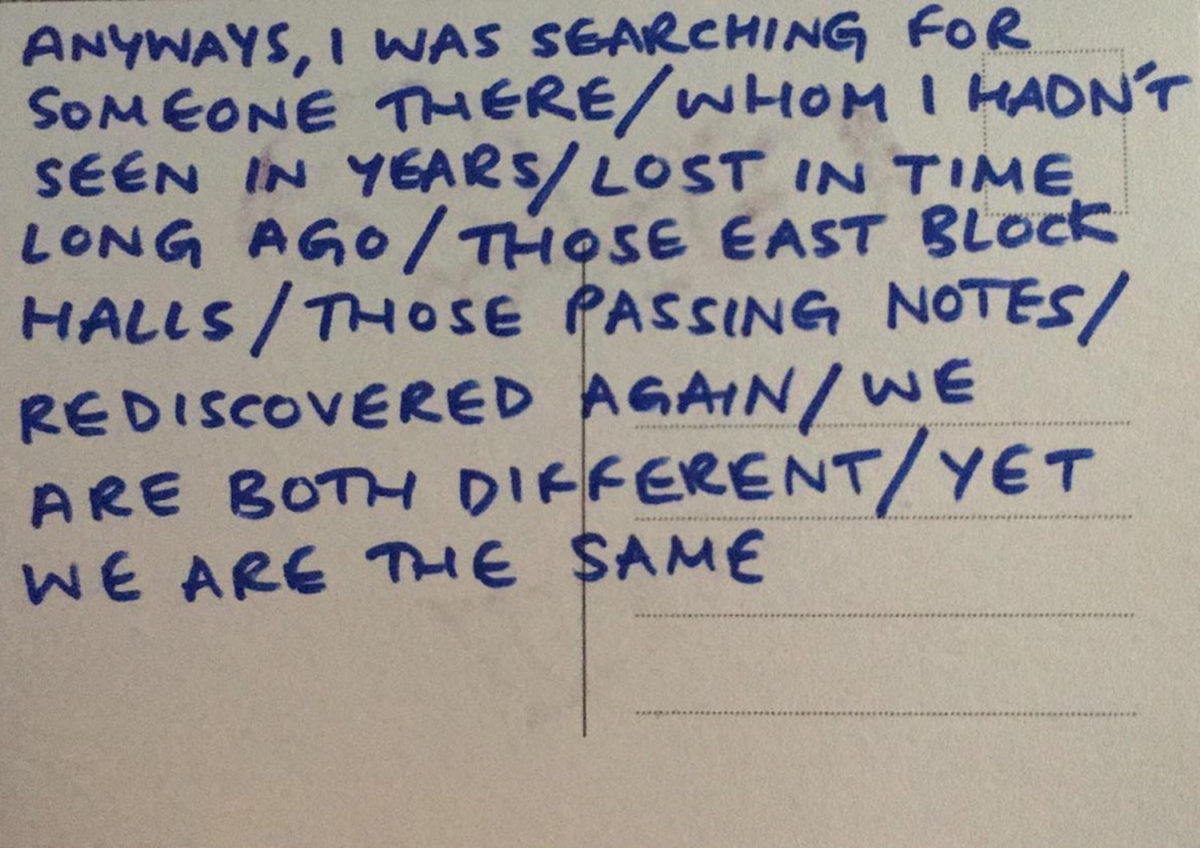 ANYWAYS, I WAS SEARCHING FOR
SOMEONE THERE/WHOM I HADN'T
SEEN IN YEARS/LOST IN TIME
LONG AGO/THOSE EAST BLOCK
HALLS/THOSE PASSING NOTES/
REDISCOVERED AGAIN/WE
ARE BOTH DIFFERENT/YET
WE ARE THE SAME